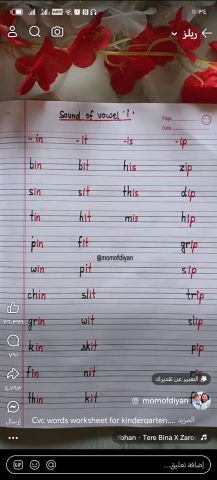 ١١:٣٤
ريلز
Sound of vowel 'i'
Page
Date
-in -it -is -ip
bin bit his zip
sin sit this dip
tin hit mis hip
pin fit grip
@momofdiyan
win pit sip
chin slit trip
grin wit slip
kin skit pip
fin nit rip
thin kit
٧٩١
إرسال
التعبير عن تقديرك
momofdiyan
Cvc words worksheet for kindergarten.... المزيد
Tere Bina X Zaroo
إضافة تعليق...
GIF